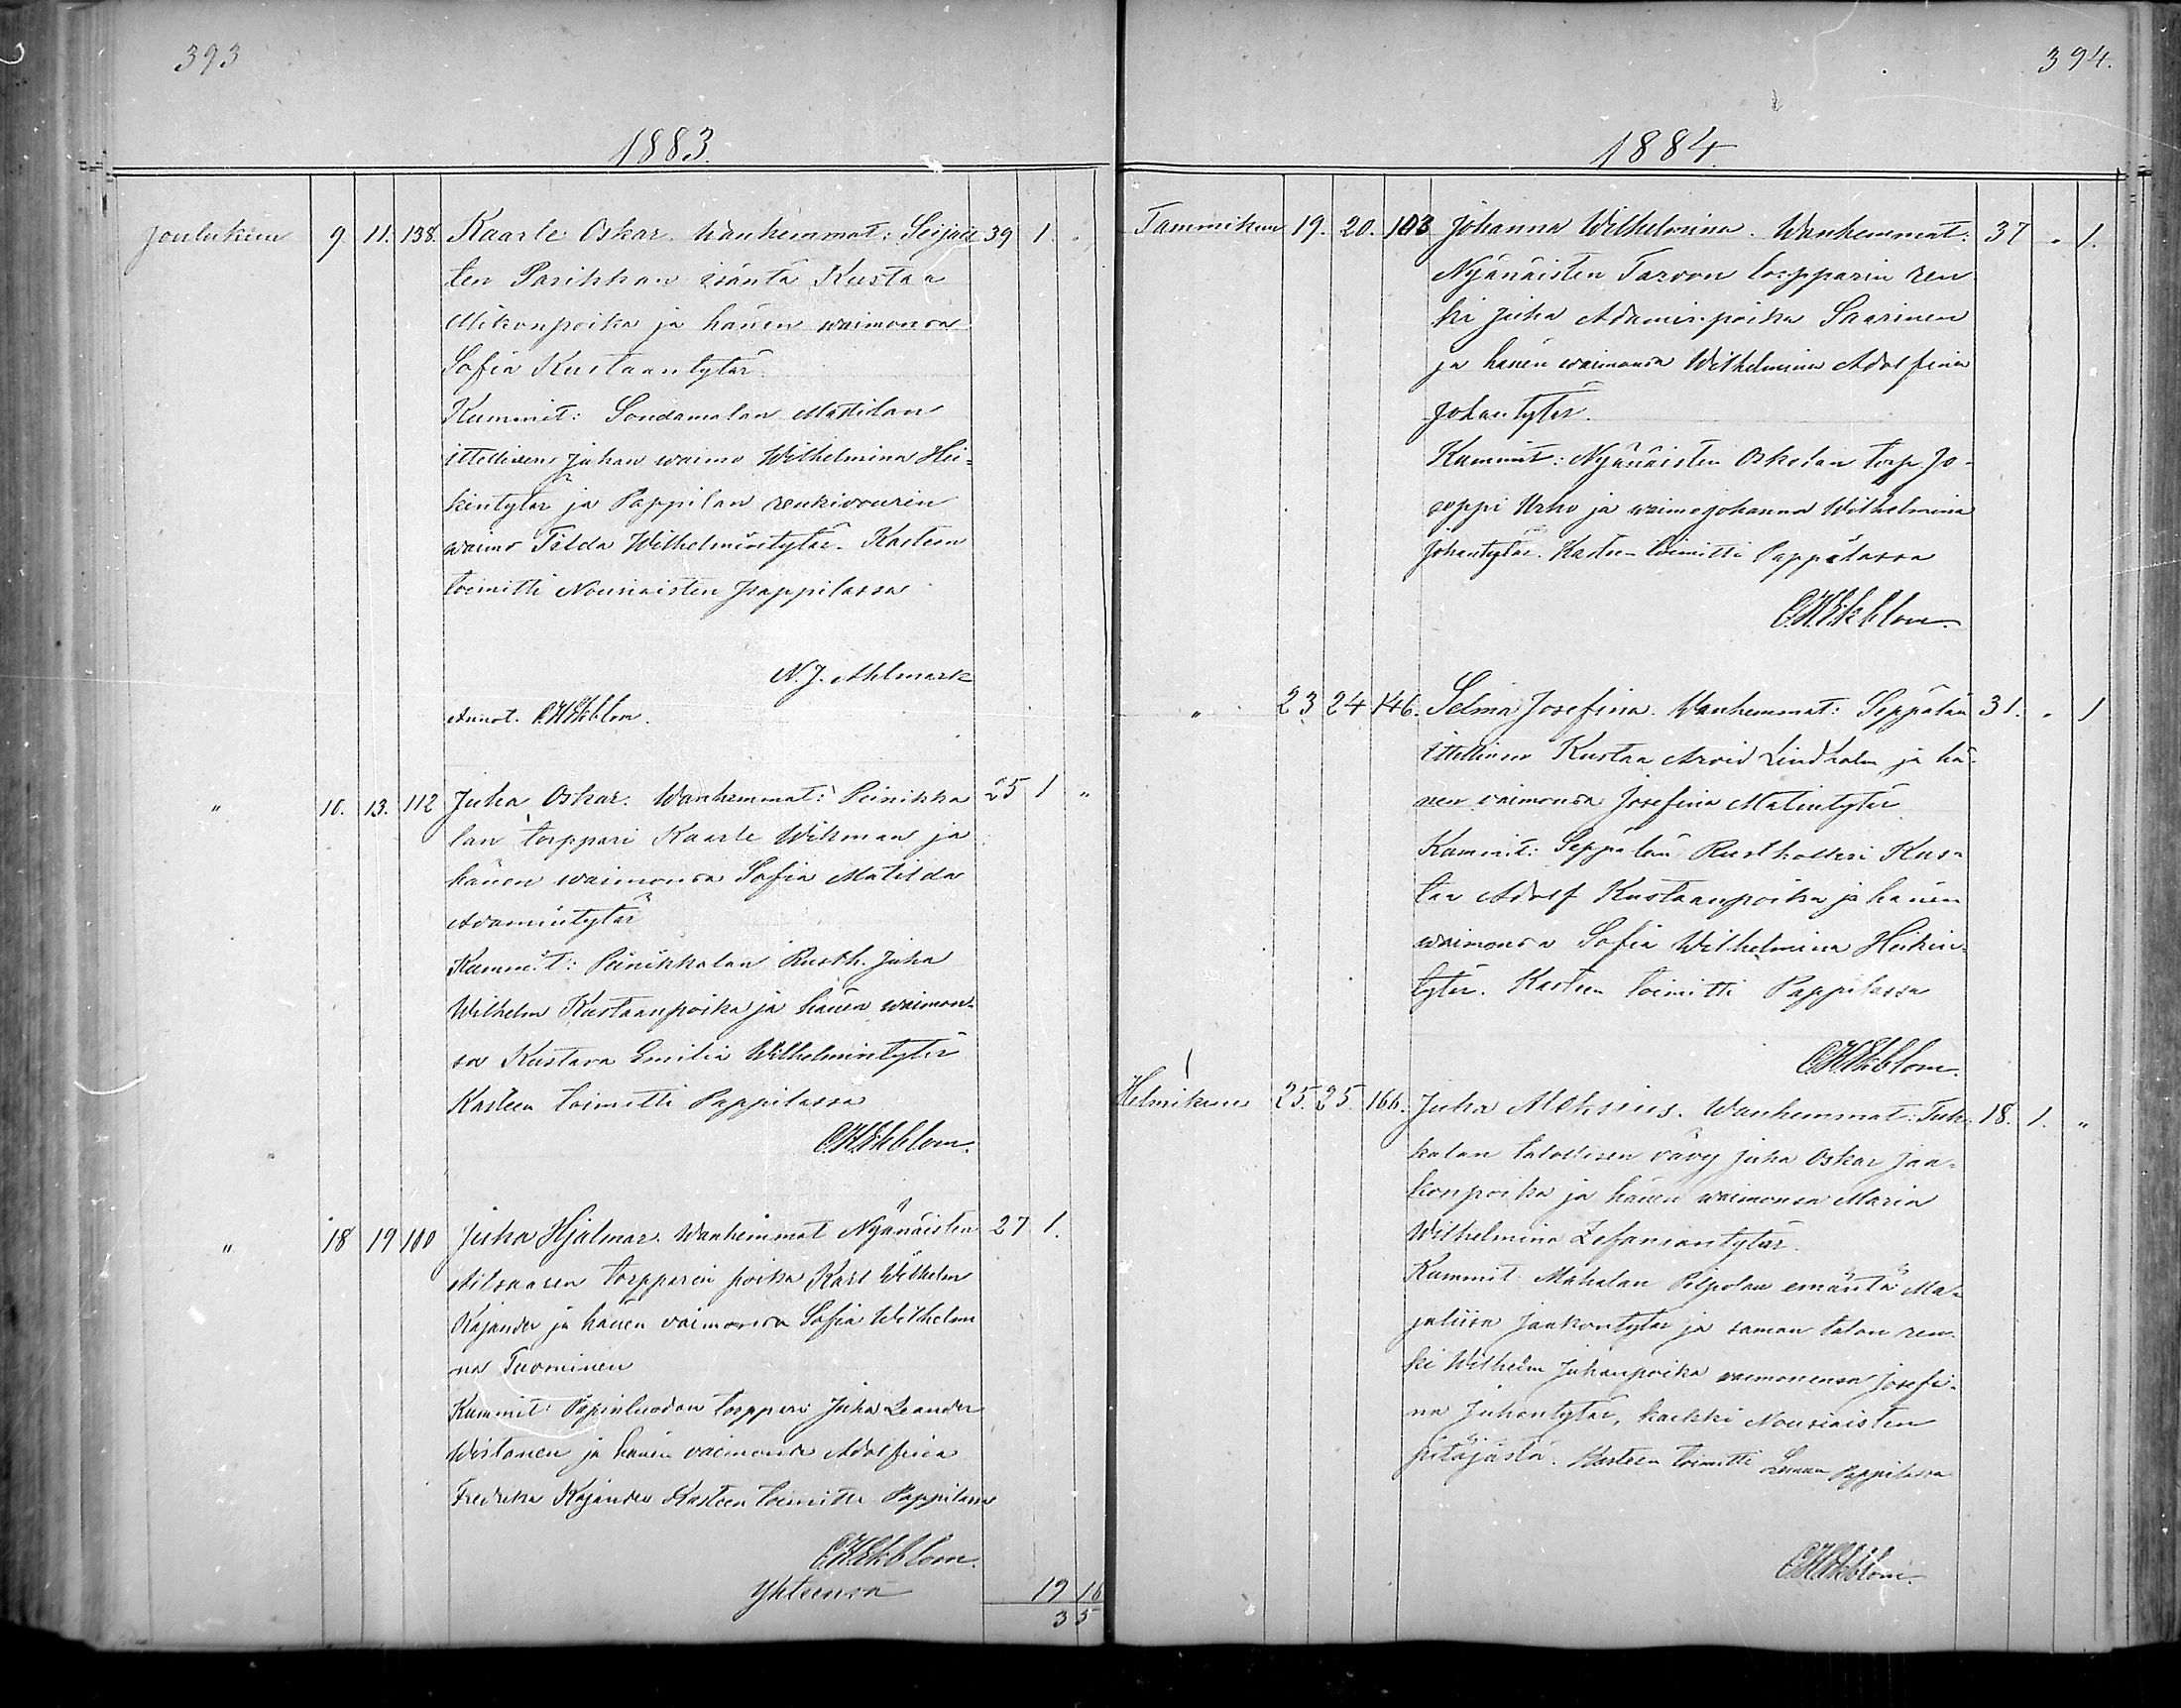 393
1883.
Joulukuu 9. 11. 138. Kaarle Oskar. Wanhemmat: Seijais 39 1. "
ten Parikkan isäntä Kustaa
Mikonpoika ja hänen waimonsa
Sofia Kustaantytär.
Kummit: Soudamalan Mattilan
ittellisen Juhan waimo Wilhelmina Hei-
kintytär ja Pappilan renkivourin
waimo Tilda Wilhelmintytär. Kasteen
toimitti Nousiaisten Pappilassa
N. J. Ahlmark
Annot. C.H.Ekblom.
" 10. 13. 112 Juha Oskar. Wanhemmat: Peinikka 25 1 "
lan torppari Kaarle Wikman ja
hänen waimonsa Sofia Matilda
Adamintytär
Kummit: Peinikkalan Rusth. Juha
Wilhelm Kustaanpoika ja hänen waimon-
sa Kustava Emilia Wilhelmintytär
Kasteen toimitti Pappilassa
C.H.Ekblom.
" 18 19 100 Juha Hjalmar. Wanhemmat Nyänäisten 27 1.
torpparin poika Karl Wilhelm
Kajander ja hänen vaimonsa Sofia Wilhelmi
na Tuominen
Kummit: Papinluodon torppari Juha Leander
Wistanen ja hänen vaimonsa Adolfina
Fredrika Kajander Kasteen toimitti Pappilassa
C.H.Ekblom.
Yhteensä 19 16
35
394.
1884.
Tammikuu 19. 20. 103 Johanna Wilhelmina. Wanhemmat: 37 " 1.
Nyänäisten Tarvon torpparin ren
ki Juha Adaminpoika Saarinen
ja hänen waimonsa Wilhelmina Adolfina
Johantytär.
Kummit: Nyänäisten Oskolan torp. Jo-
seppi Urho ja waimo Johanna Wilhelmina
Johantytär. Kasteen toimitti Pappilassa
C.H.Ekblom.
" 23 24 146. Selma Josefina. Wanhemmat: Seppälän 31. " 1
ittellinen Kustaa Arvid Lindholm ja hä-
nen vaimonsa Josefina Matintytär
Kummit: Seppälän Rusthollari Kus-
taa Adolf Kustaanpoika ja hänen
waimonsa Sofia Wilhelmina Heikin-
tytär. Kasteen toimitti Pappilassa
C.H.Ekblom.
Helmikuu 25. 25. 166. Juha Aleksius. Wanhemmat: Tuk- 18. 1. "
kalan talollisen vävy Juha Oskar Jaa-
konpoika ja hänen waimonsa Maria
Wilhelmina Zefaniantytär.
Kummit Mahalan Pilpolan emäntä Ma-
jaliisa Jaakontytär ja saman talon ren-
ki Wilhelm Juhanpoika waimonensa Josefi-
na Juhantytär, kaikki Nousiaisten
pitäjästä. Kasteen toimitti Lemun Pappilassa
C.H.Ekblom.